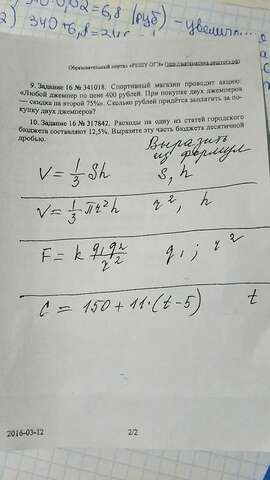 340·0,02=6,8 (руб)
2) 340+6,8= - увелич...
Образовательный портал «РЕШУ ОГЭ»
9. Задание 16 № 341018. Спортивный магазин проводит акцию:
«Любой джемпер по цене 400 рублей. При покупке двух джемперов
— скидка на второй 75%». Сколько рублей придётся заплатить за по-
купку двух джемперов?
10. Задание 16 № 317842. Расходы на одну из статей городского
бюджета составляют 12,5%. Выразите эту часть бюджета десятичной
дробью.
Выразить
из формул
V = 1/3 Sh S, h
V = 1/3 πr²h r², h
F = k q₁q₂/r² q₁; r²
C = 150 + 11·(t-5) t
2016-03-12 2/2